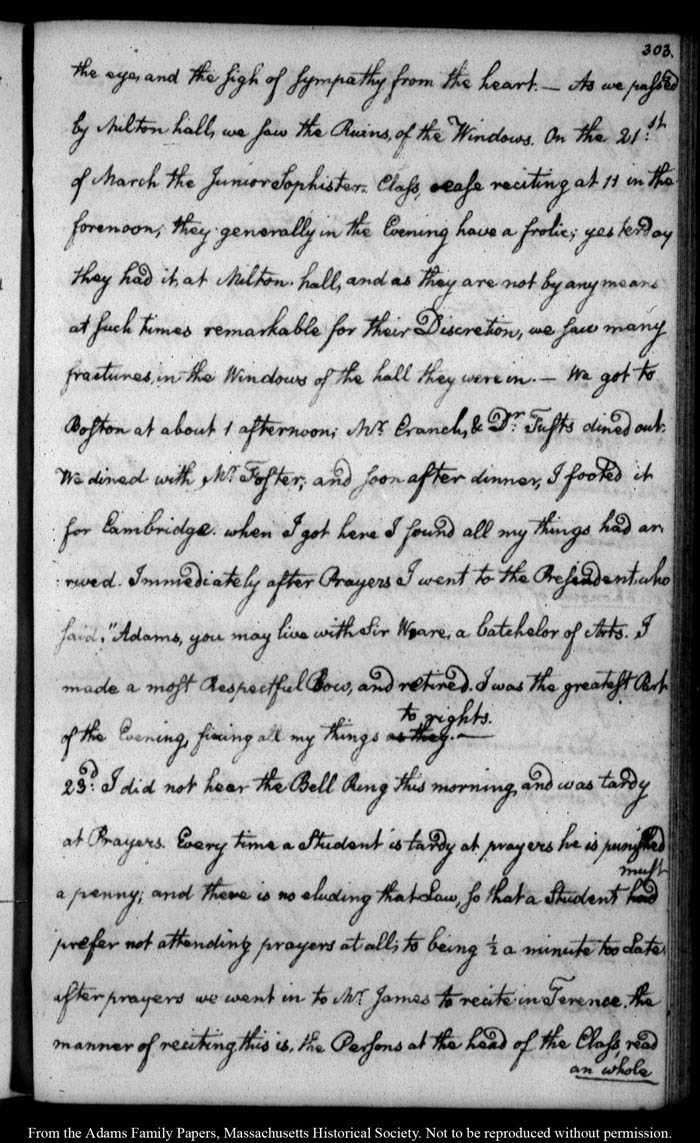 303.
the eye, and the sigh of sympathy from the heart. — As we passed
by Milton hall, we saw the Ruins, of the Windows. On the 21.st
of March the Junior Sophister. Class, cease reciting at 11 in the
forenoon; they generally in the Evening have a frolic; yesterday
they had it, at Milton. hall, and as they are not by any means
at such times remarkable for their Discretion, we saw many
fractures, in the Windows of the hall they were in. — We got to
Boston at about 1 afternoon; Mr. Cranch, & Dr. Tufts dined out.
We dined with Mr. Foster; and soon after dinner, I footed it
for Cambridge. when I got here I found all my things had ar:
:rived. Immediately after Prayers I went to the President, who
said, "Adams, you may live with Sir Ware, a batchelor of Arts. I
made a most Respectful Bow, and retired. I was the greatest Part
of the Evening, fixing all my things as they to rights. —
23d. I did not hear the Bell Ring this morning, and was tardy
at Prayers. Every time a Student is tardy at prayers he is punished
a penny; and there is no eluding that Law, so that a Student had must
prefer not attending prayers at all; to being ½ a minute too Late.
after prayers we went in to Mr. James to recite in Terence. the
manner of reciting this is, the Persons at the head of the Class, read
an whole
From the Adams Family Papers, Massachusetts Historical Society. Not to be reproduced without permission.